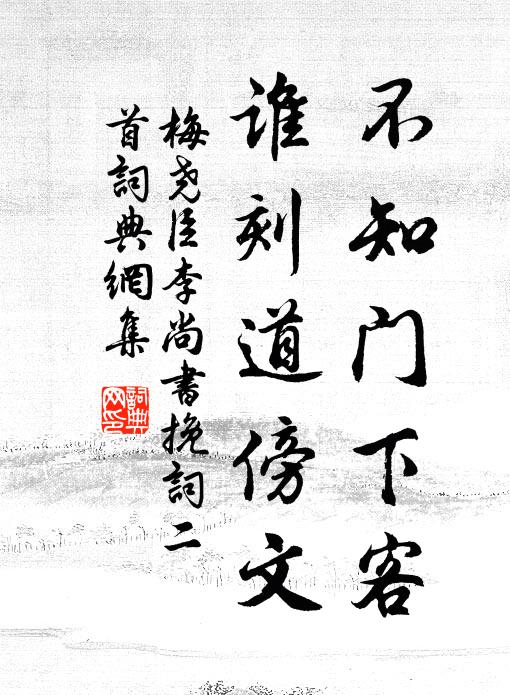 不知門下客
誰刻道傍文
梅堯臣李尚書挽詞二
首詞典網集
詞典
网印